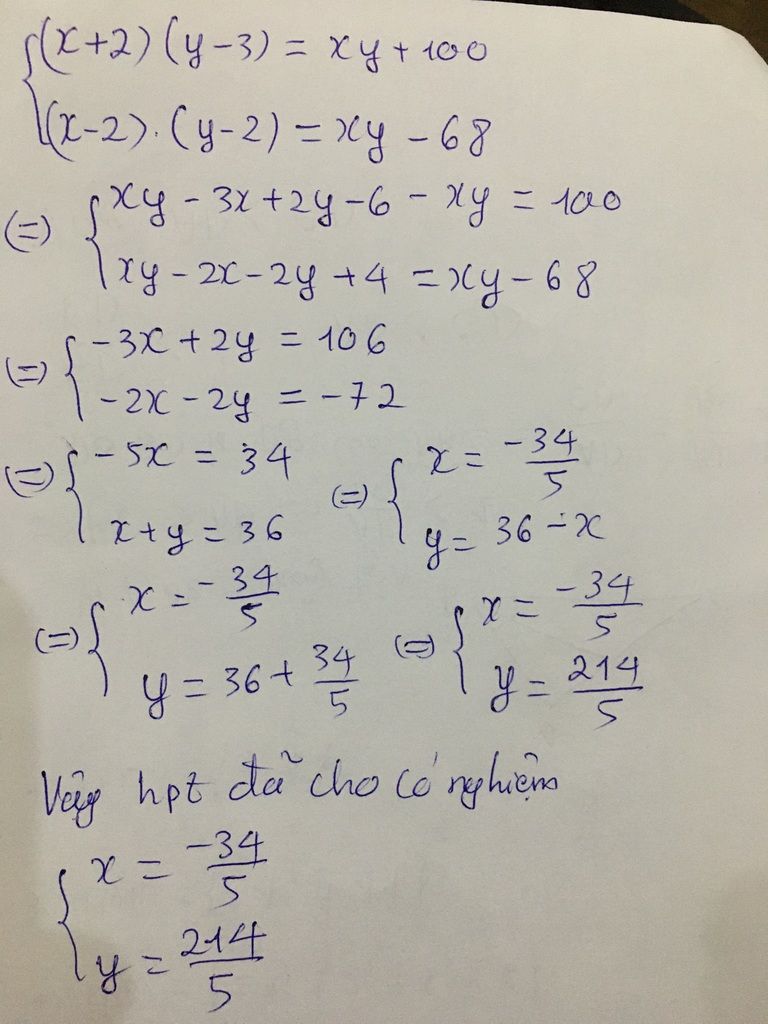 { (x+2)(y-3) = xy + 100
(x-2).(y-2) = xy - 68
(=) { xy - 3x + 2y - 6 - xy = 100
xy - 2x - 2y + 4 = xy - 68
(=) { -3x + 2y = 106
-2x - 2y = -72
(=) { -5x = 34 (=) { x = -34/5
x + y = 36 y = 36 - x
(=) { x = -34/5 (=) { x = -34/5
y = 36 + 34/5 y = 214/5
Vậy hpt đã cho có nghiệm
{ x = -34/5
y = 214/5